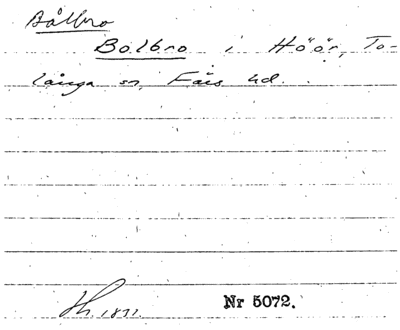 Bålbro
Bolbro i Höör, To-
långa sn, Färs hd.
Hr. 1871.
Nr 5072.